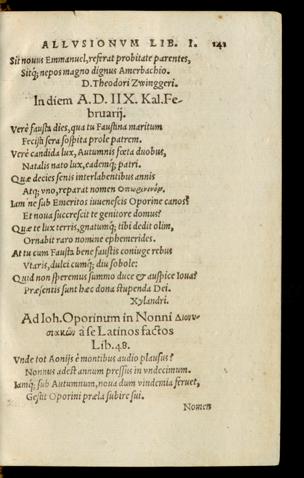 ALLVSIONVM LIB. I. 141
Sit nouus Emmanuel, referat probitate parentes,
Sitq; nepos magno dignus Amerbachio.
D. Theodori Zwinggeri.
In diem A. D. IIX. Kal. Fe-
bruarij.
Verè fausta dies, qua tu Faustina maritum
Fecisti sera sospita prole patrem.
Verè candida lux, Autumnis fœta duobus,
Natalis nato lux, eademq; patri.
Quæ decies senis interlabentibus annis
Atq; vno, reparat nomen Οπωρινικόν.
Iam ne sub Emeritos iuuenescis Oporine canos?
Et noua succrescit te genitore domus?
Quæ te lux terris, gnatumq; tibi dedit olim,
Ornabit raro nomine ephemerides.
At tu cum Fausta bene faustis coniuge rebus
Vtaris, dulci cumq; diu sobole:
Quid non speremus summo duce & auspice Ioua?
Præsentis sunt hæc dona stupenda Dei.
Xylandri.
Ad Ioh. Oporinum in Nonni Διονυ-
σιακῶν à se Latinos factos
Lib. 48.
Vnde tot Aonijs è montibus audio plausus?
Nonnus adest annum pressus in vndecimum.
Iamq; sub Autumnum, noua dum vindemia feruet,
Gestit Oporini præla subire sui.
Nomen